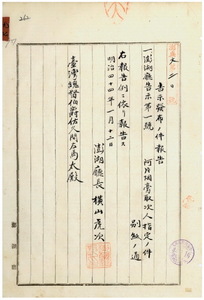 告示發布ノ件報告
一澎湖廳告示第一號
阿片煙膏取次人指定ノ件
別紙ノ通
右報告例ニ依リ報告ス
明治四十四年一月十三日
澎湖廳長 橫山虎次
臺灣總督伯爵佐久間左馬太殿